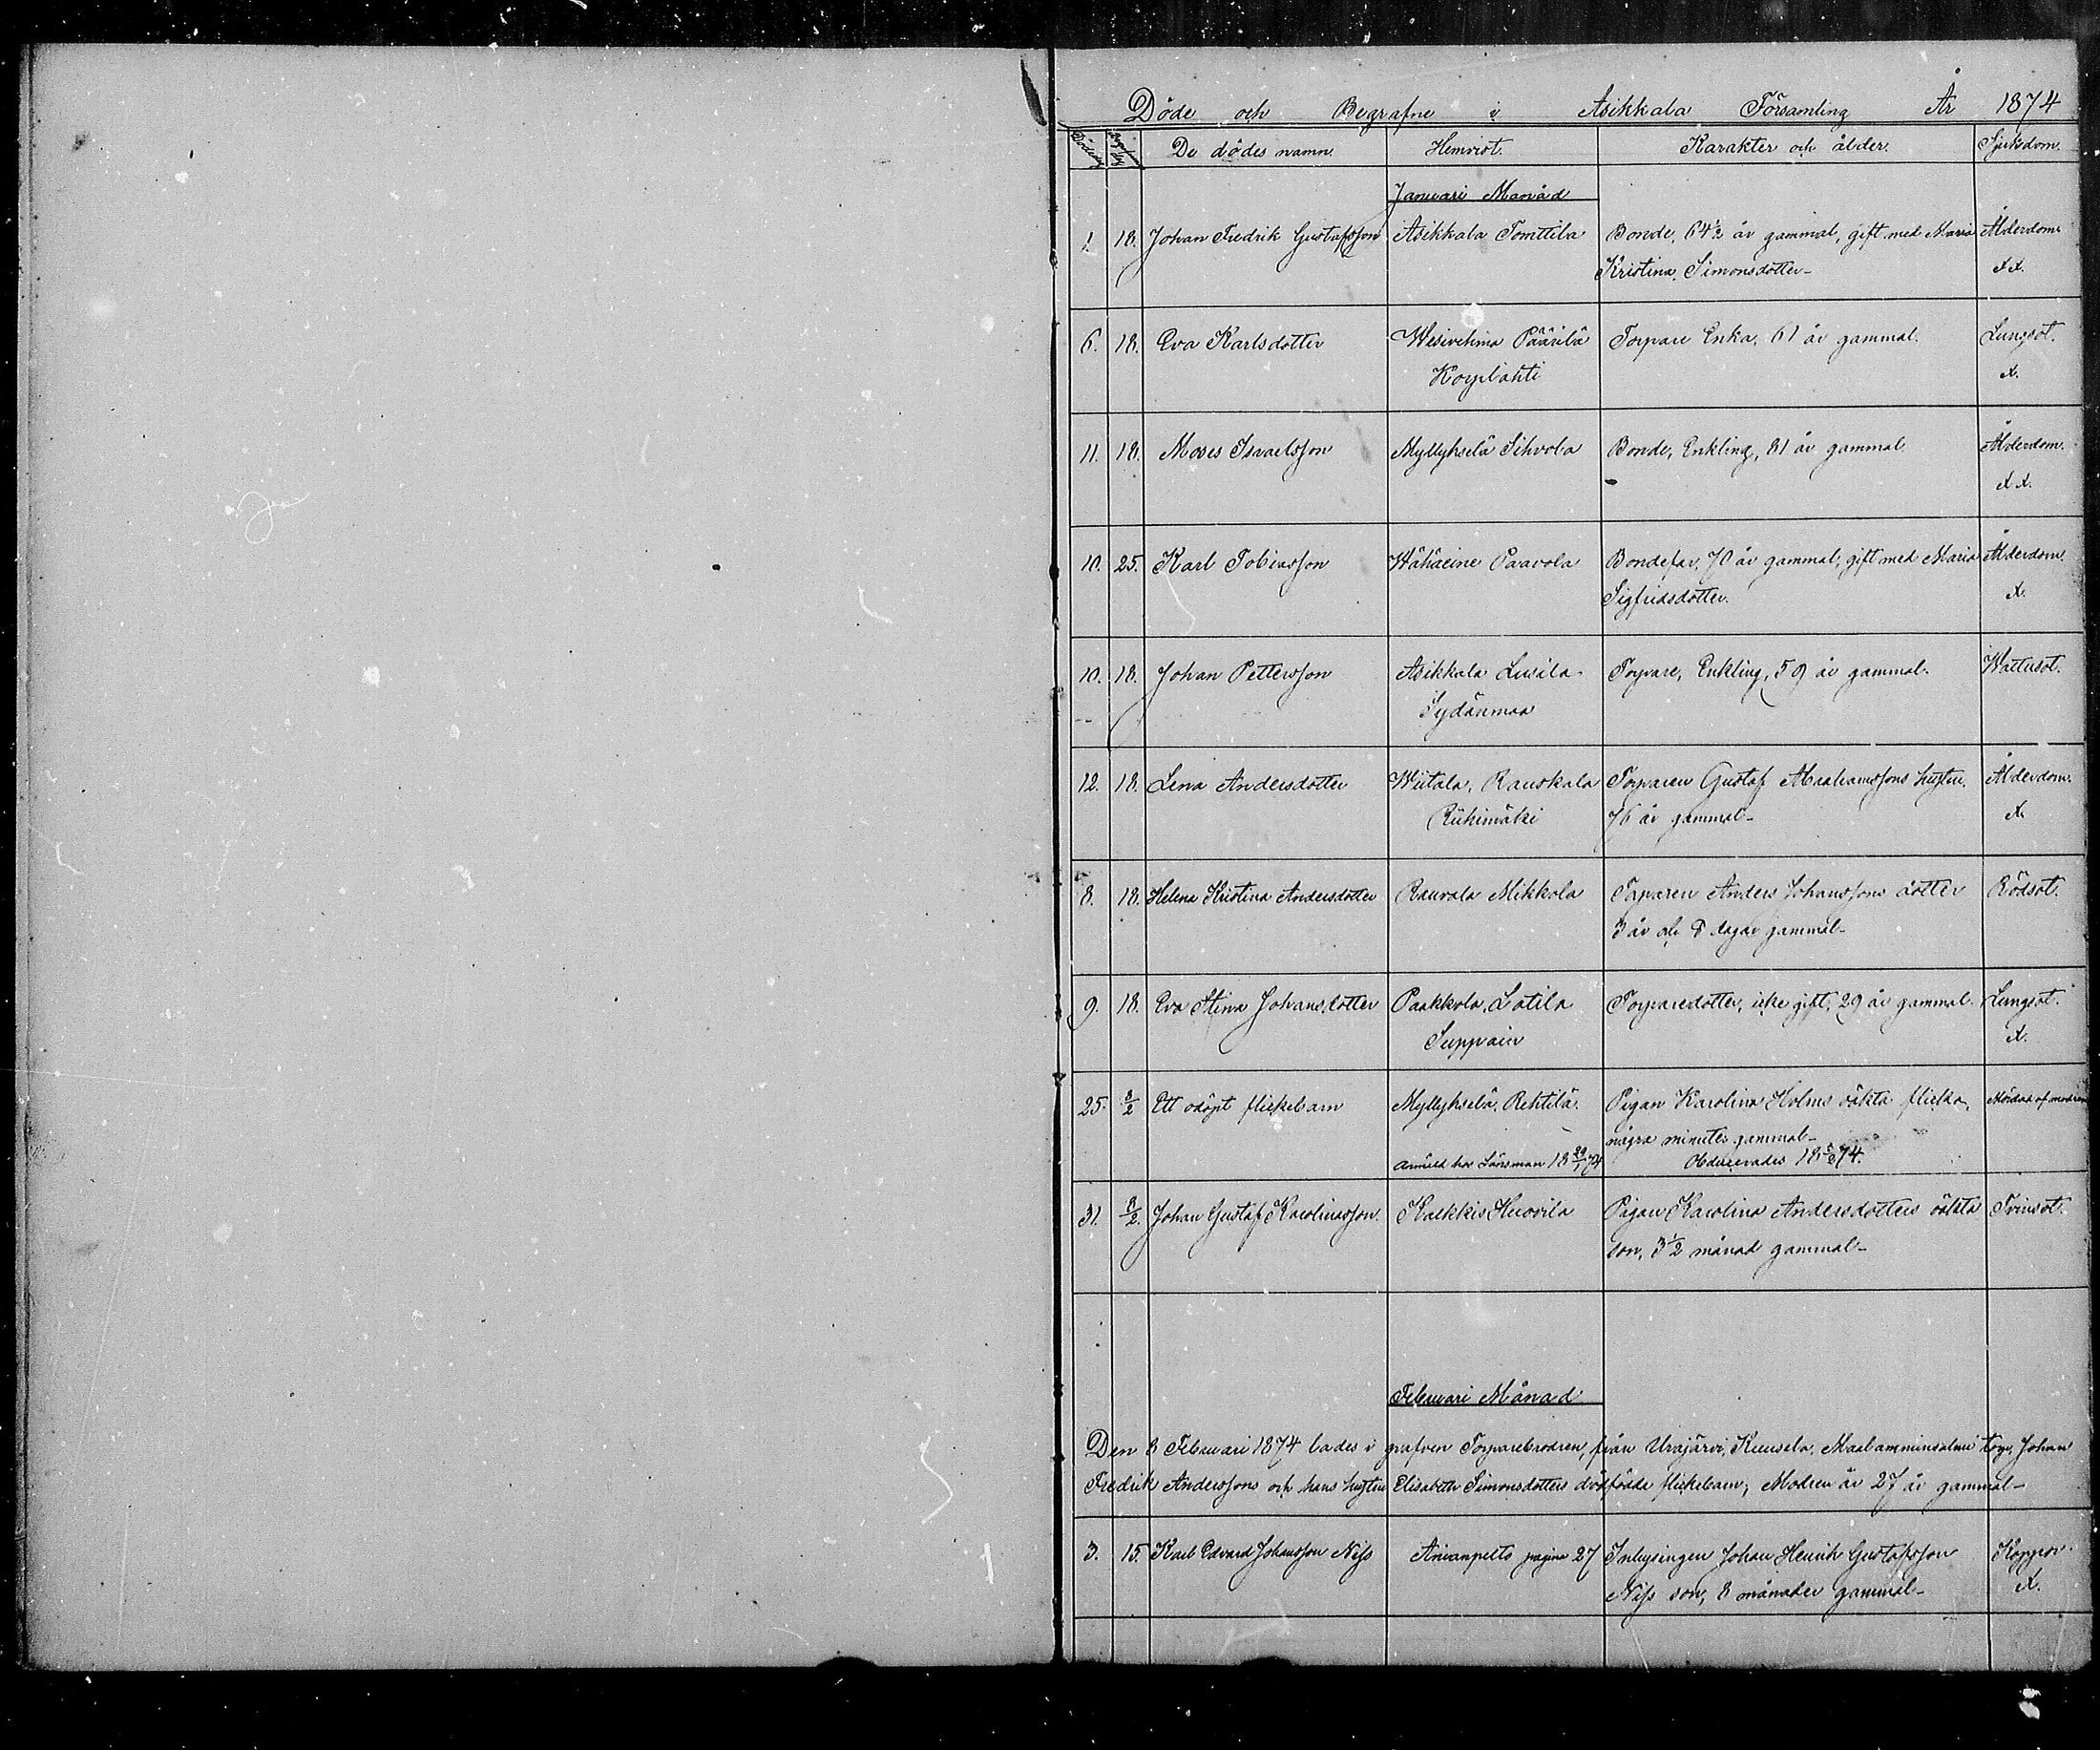 Döde och Begrafne i Asikkala Församling År 1874
De dödes namn. Hemvist. Karakter och ålder. Sjukdom.
Januari Månad
1. 18. Johan Fredrik Gustafsson Asikkala Tomttila Bonde, 64½ år gammal, gift med Maria Ålderdom
Kristina Simonsdotter. x x.
6. 18. Eva Karlsdotter Wesivehma Päärilä Torpare Enka, 61 år gammal. Lungsot.
Korpilahti x.
11. 18. Moses Israelsson Myllykselä Sihvola Bonde, Enkling, 81 år gammal Ålderdom.
x x.
10. 25. Karl Tobiasson Wähäeine Paavola Bondefar, 70 år gammal, gift med Maria Ålderdom.
Sigfridsdotter. x.
10. 18. Johan Pettersson Asikkala Torpare, Enkling, 59 år gammal. Wattusot.
Sydänmaa
12. 18. Lena Andersdotter Wiitala, Rauskala Torparen Gustaf Abrahamssons hustru, Ålderdom.
Riihimäki 76 år gammal. x
8. 18. Helena Kristina Andersdotter Mikkola Torparen Anders Johanssons dotter Rödsot.
3 år och 8 dagar gammal.
9. 18. Eva Stina Johansdotter Paakkola, Lotila Torparedotter, icke gift, 29 år gammal. Lungsot.
x.
25. 8/2 Ett odöpt flickebarn Myllykselä, Rehtilä. Pigan Karolina Holms oäkta flicka, Mördad af modren
några minuter gammal.
Länsman 18 29/1 74 Obducerades 18 5/2 74.
31. 8/2. Johan Gustaf Karolinasson. Kalkkis Huovila Pigan Karolina Andersdotters oäkta Tvinsot.
son, 3½ månad gammal.
Februari Månad
Den 8 Februari 1874 lades i grafven Torparebrodren, från Urajärvi, Kuusela, torp, Johan
Fredrik Anderssons och hans hustru Elisabeth Simonsdotters dödfödda flickebarn; Modren är 27 år gammal.
3. 15. Karl Edvard Johansson Nijs Anianpelto pagina 27 Inhysingen Johan Henrik Gustafsson Koppor
Nijs son, 8 månader gammal. x.